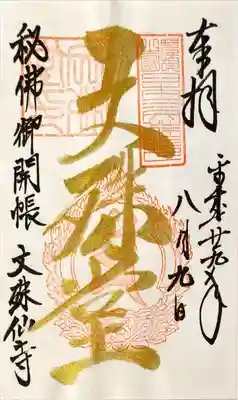 奉拝
平成廿九年
八月九日
文殊堂
秘佛御開帳
文殊仙寺